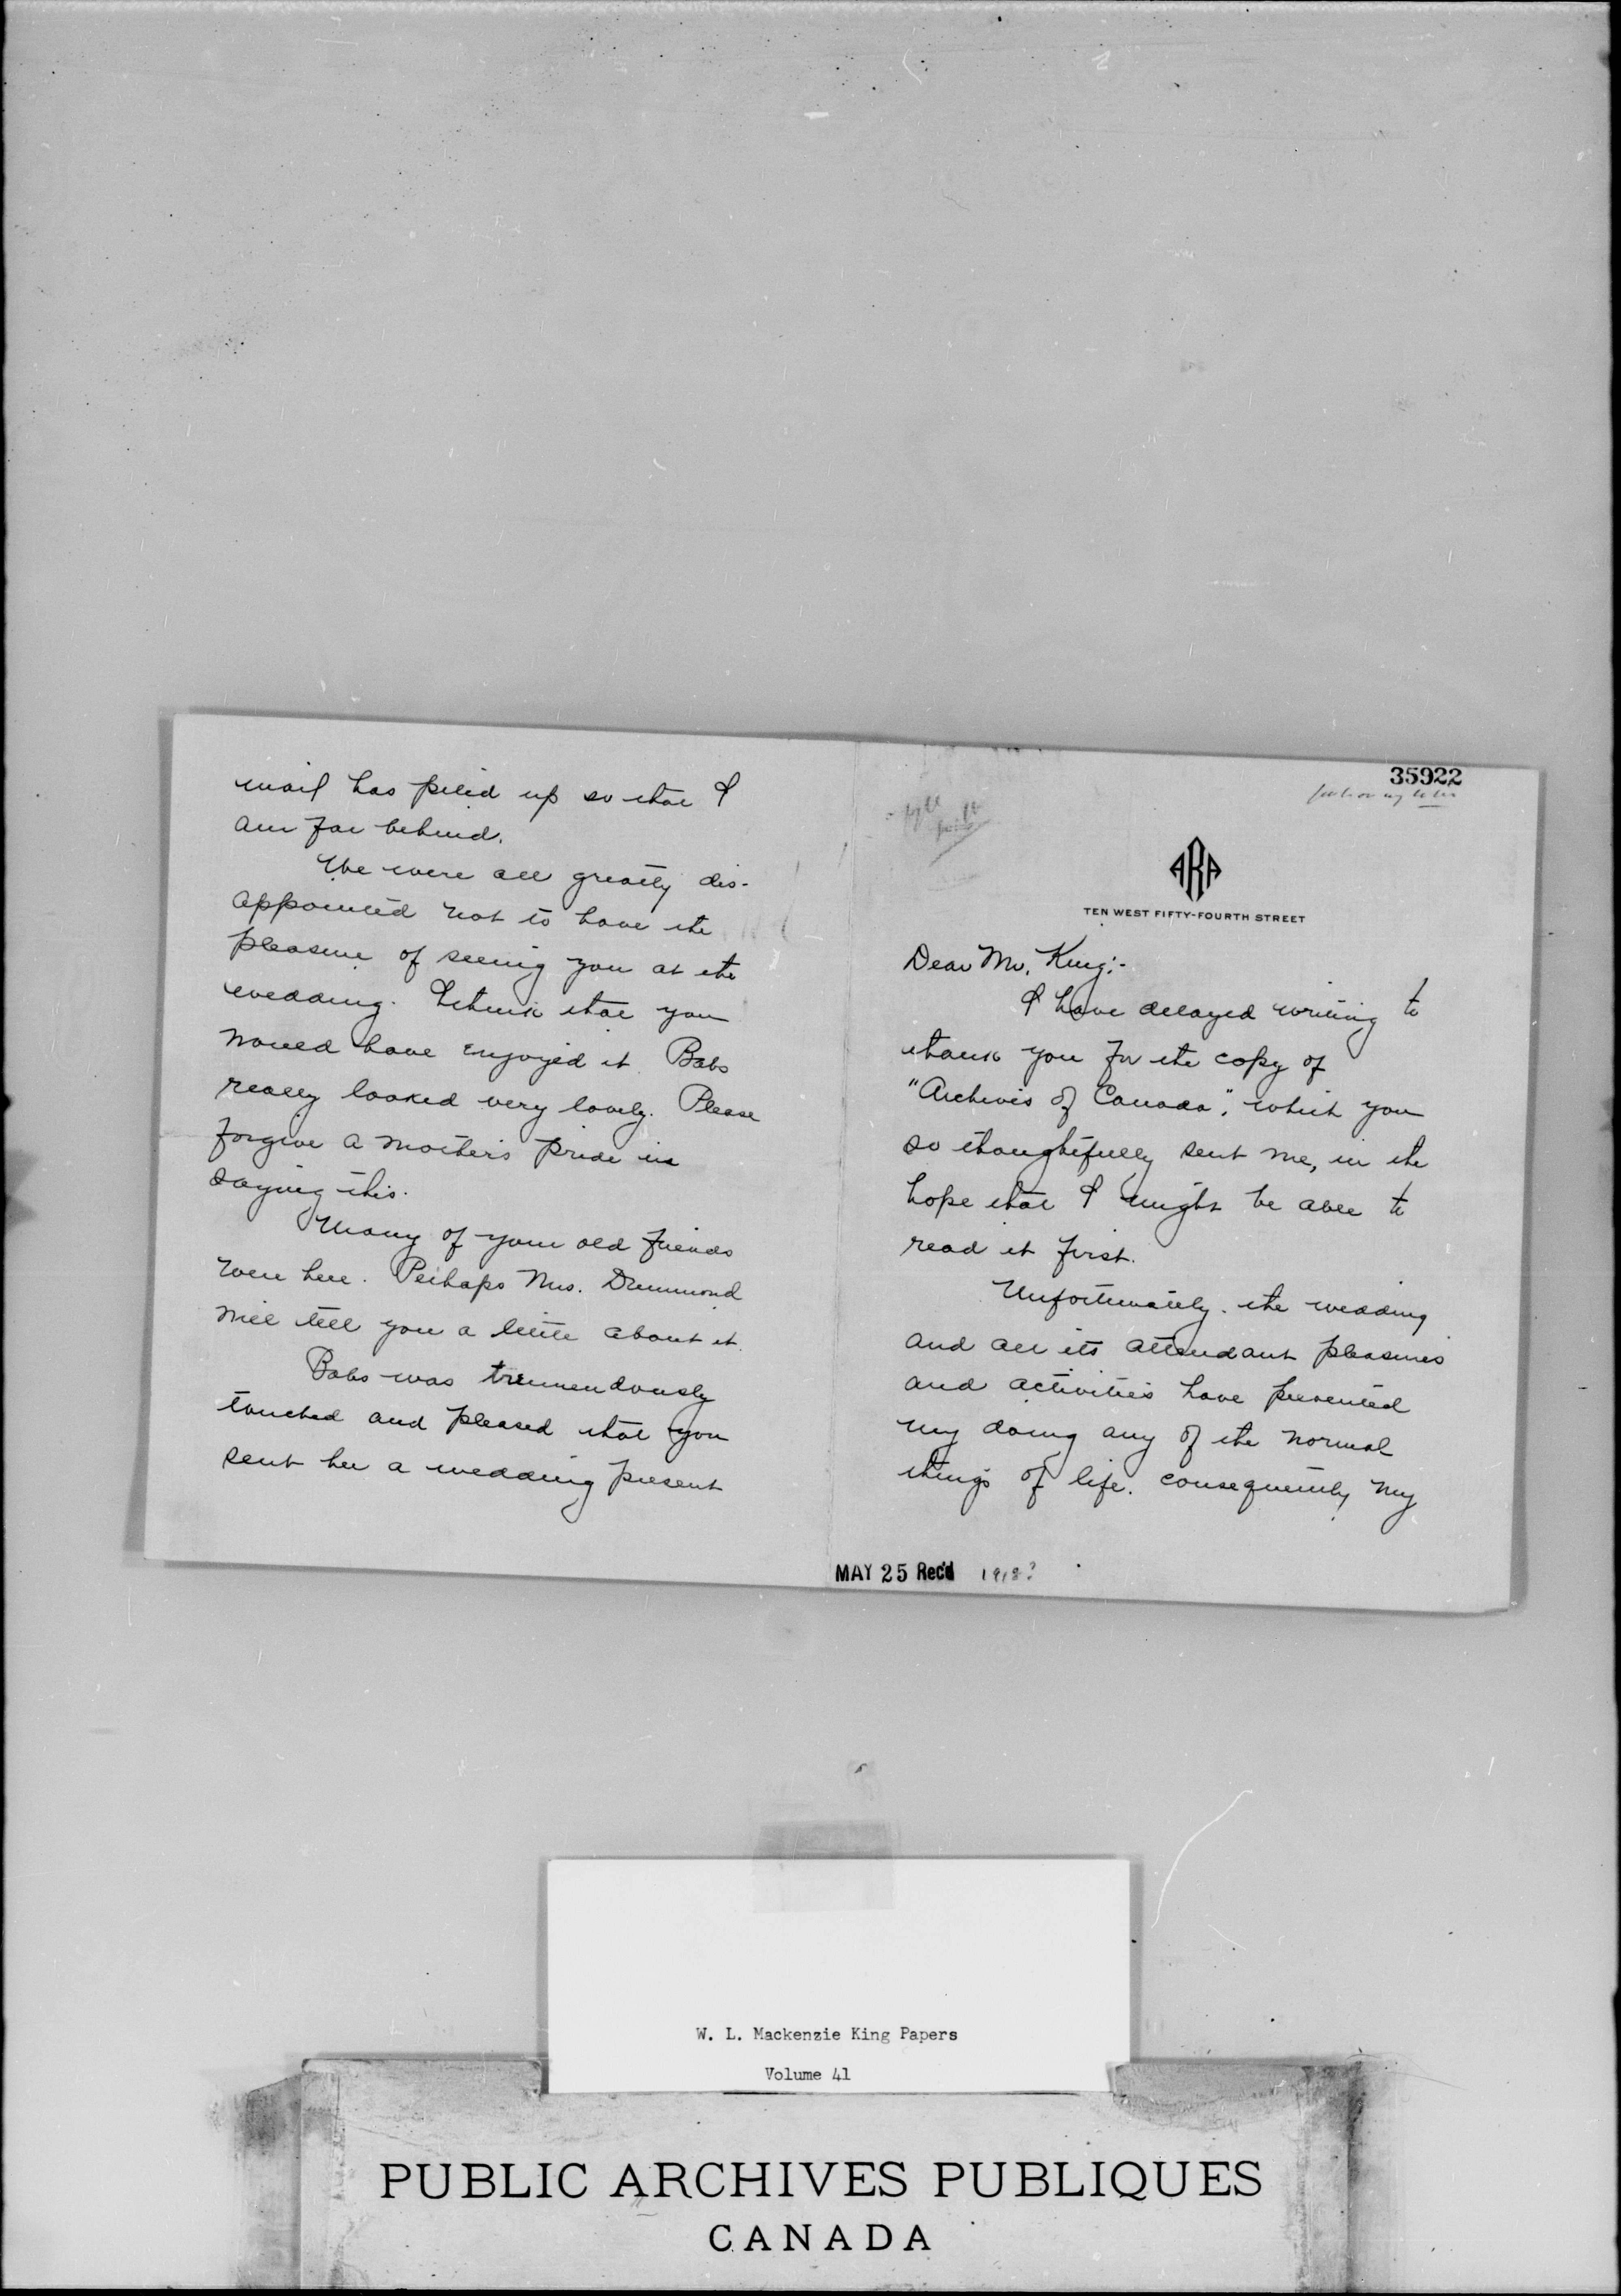 35922
ARA
TEN WEST FIFTY-FOURTH STREET
Dear Mr. King:-
I have delayed writing to
thank you for the copy of
"Archives of Canada", which you
so thoughtfully sent me, in the
hope that I might be able to
read it first.
Unfortunately. the wedding
and all its attendant pleasures
and activities have prevented
my doing any of the normal
things of life. consequently my
MAY 25 Rec'd 1918?
mail has piled up so that I
am far behind.
We were all greatly dis-
appointed not to have the
pleasure of seeing you at the
wedding. I think that you
would have enjoyed it. Babs
really looked very lovely. Please
forgive a mother's pride in
saying this.
Many of your old friends
were here. Perhaps Mrs. Drummond
will tell you a little about it.
Babs was tremendously
touched and pleased that you
sent her a wedding present
W. L. Mackenzie King Papers
Volume 41
PUBLIC ARCHIVES PUBLIQUES
CANADA